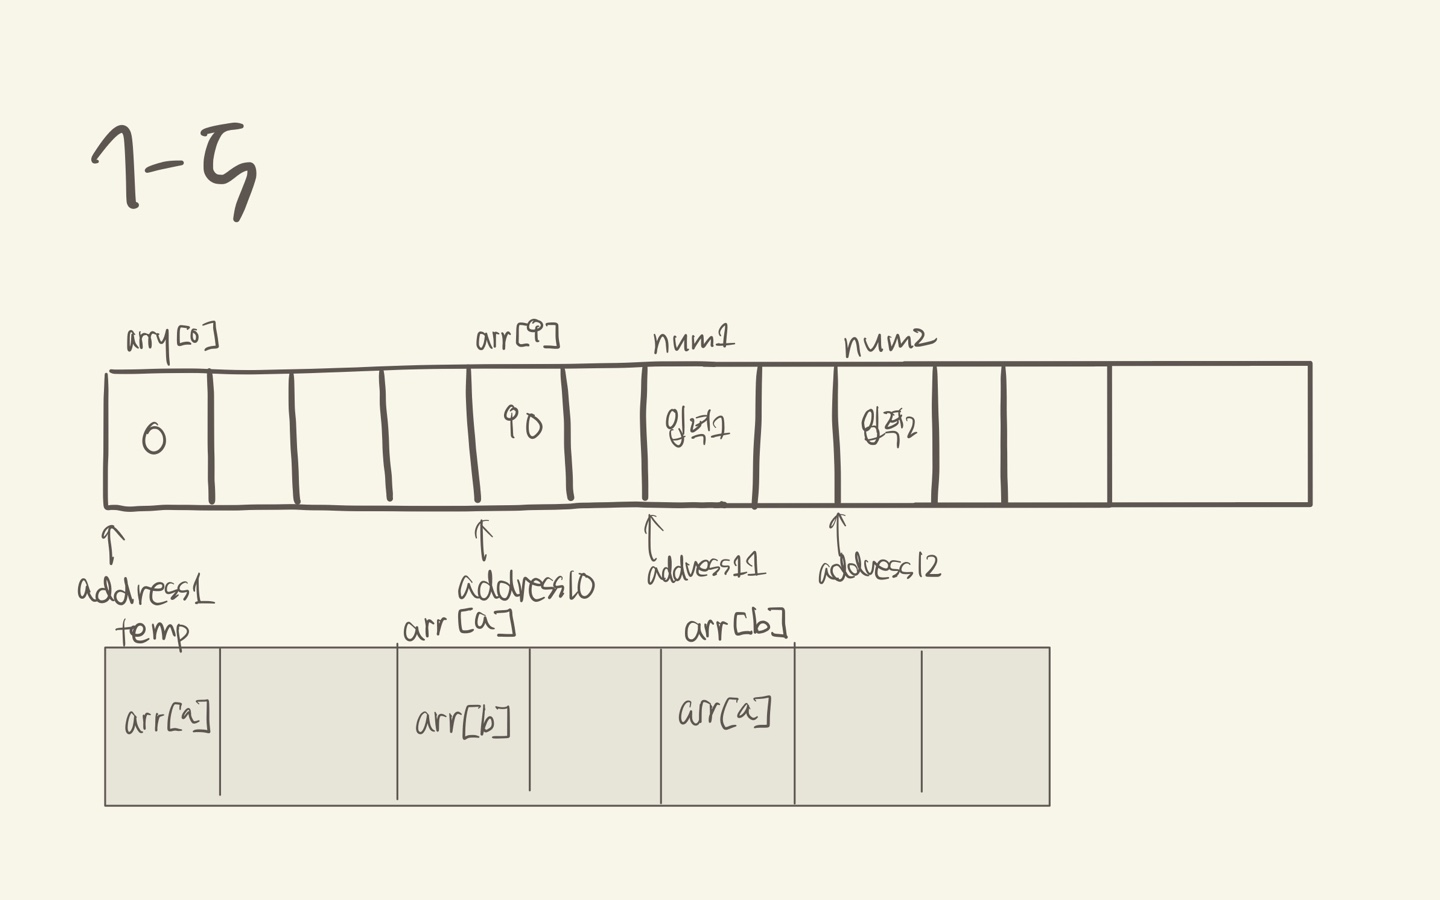 1-5
arry[0] arr[9] num1 num2
0 90 입력1 입력2
address1 address10 address11 address12
temp arr[a] arr[b]
arr[a] arr[b] arr[a]